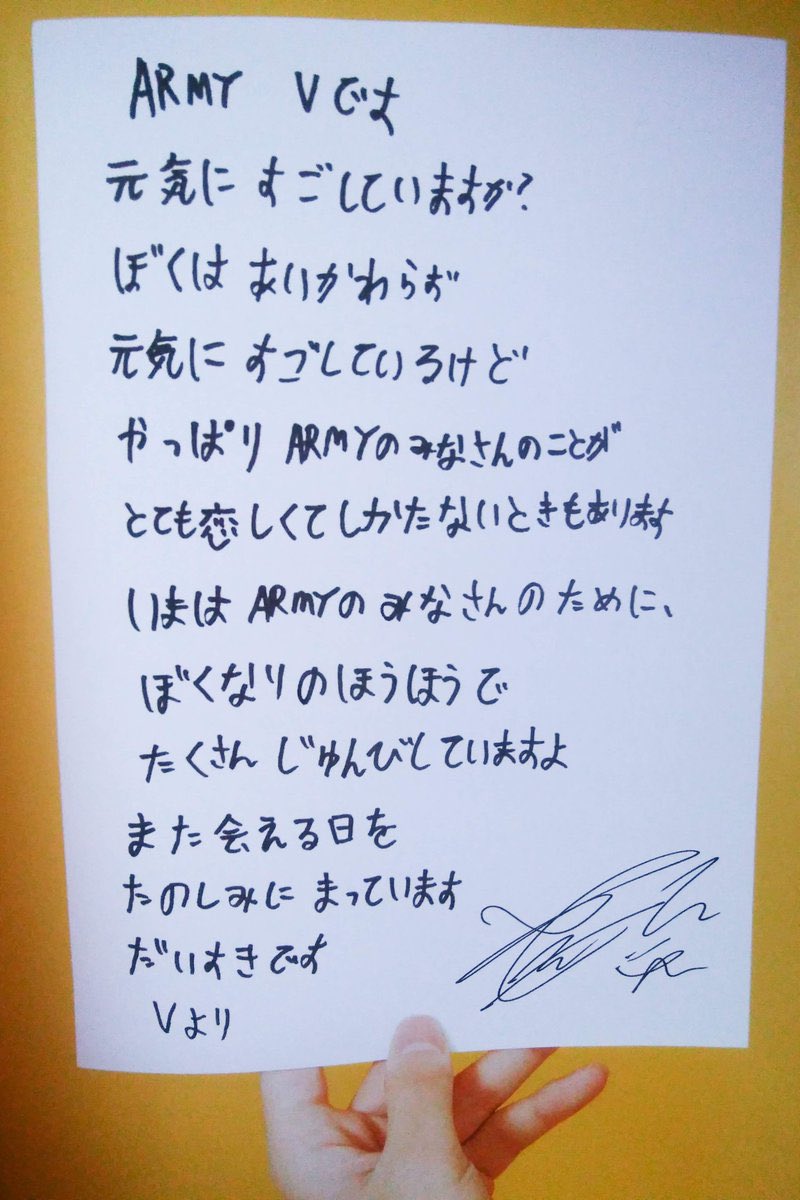 ARMY Vです
元気に すごしていますか?
ぼくは あいかわらず
元気に すごしているけど
やっぱり ARMYのみなさんのことが
とても恋しくてしかたないときもあります
いまは ARMYの みなさんのために、
ぼくなりのほうほうで
たくさん じゅんびしていますよ
また会える日を
たのしみに まっています
だいすきです
Vより